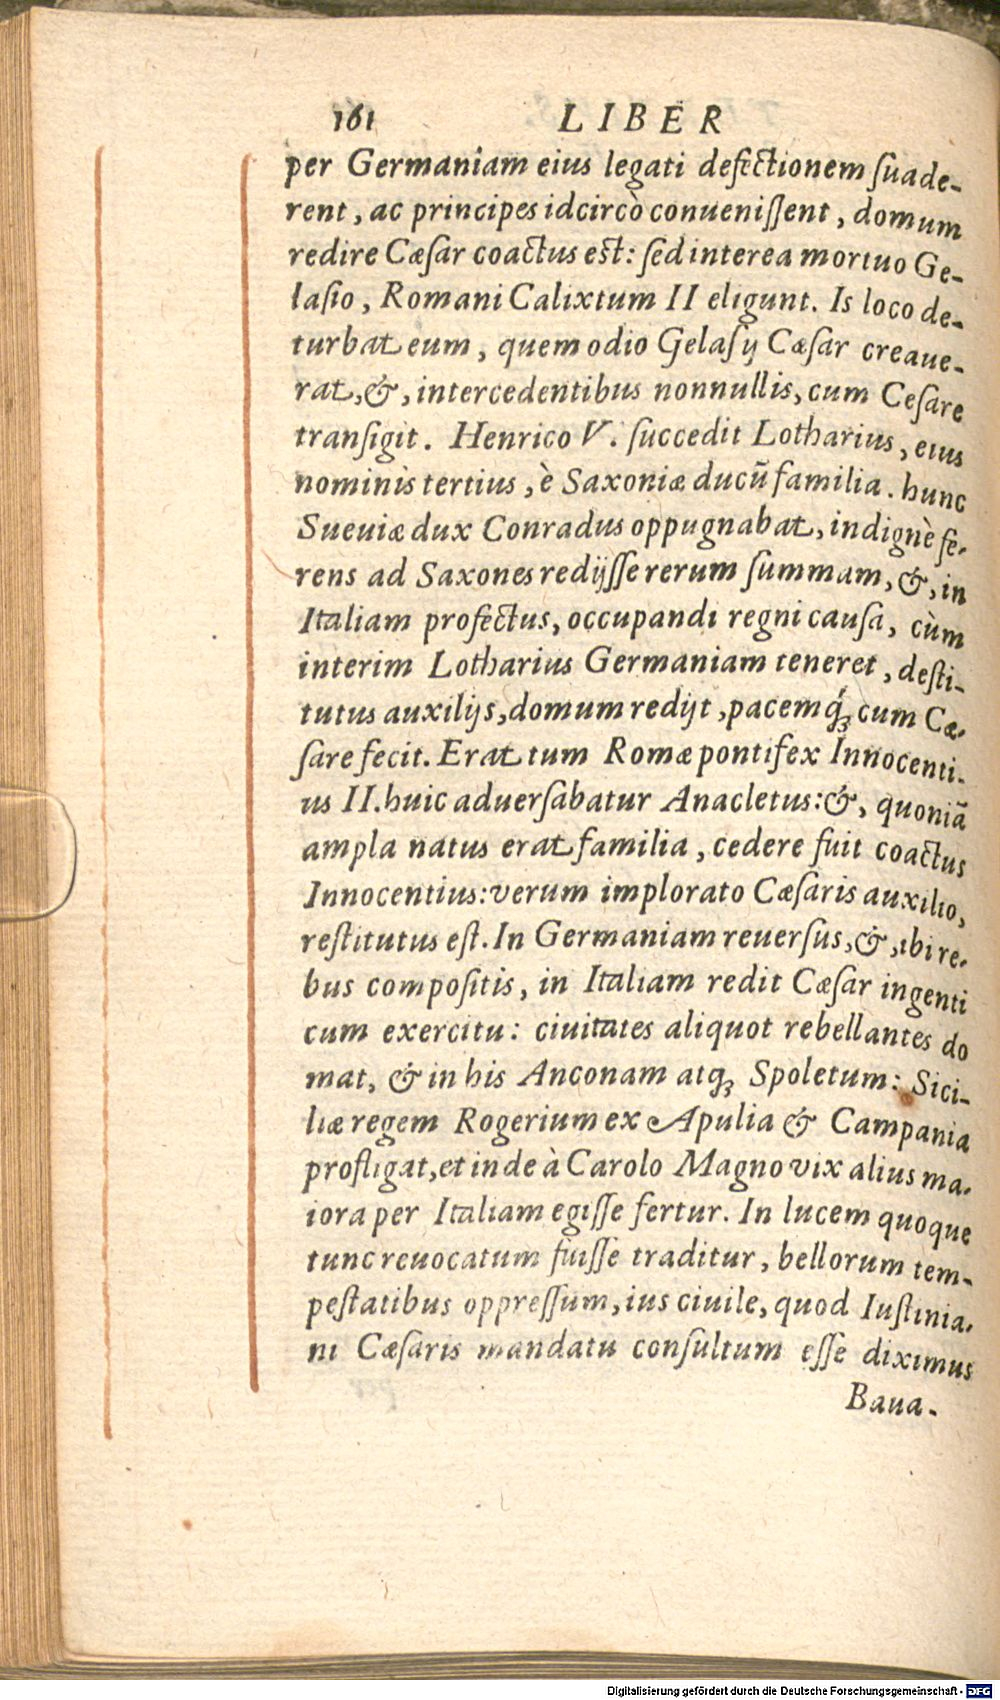 161 LIBER
per Germaniam eius legati defectionem ſuade-
rent, ac principes idcircò conueniſſent, domum
redire Cæſar coactus est: ſed interea mortuo Ge-
laſio, Romani Calixtum II eligunt. Is loco de-
turbat eum, quem odio Gelaſij Cæſar creaue-
rat, &, intercedentibus nonnullis, cum Ceſare
tranſigit. Henrico V. ſuccedit Lotharius, eius
nominis tertius, è Saxoniæ ducū familia. hunc
Sueuiæ dux Conradus oppugnabat, indignè fe-
rens ad Saxones redijſſe rerum ſummam, &, in
Italiam profectus, occupandi regni cauſa, cùm
interim Lotharius Germaniam teneret, deſti-
tutus auxilijs, domum redijt, pacemq́ꝫ cum Cæ-
ſare fecit. Erat tum Romæ pontifex Innocenti-
us II. huic aduerſabatur Anacletus: &, quoniā
ampla natus erat familia, cedere fuit coactus
Innocentius: verum implorato Cæſaris auxilio,
reſtitutus eſt. In Germaniam reuerſus, &, ibi re-
bus compoſitis, in Italiam redit Cæſar ingenti
cum exercitu: ciuitates aliquot rebellantes do
mat, & in his Anconam atqꝫ Spoletum: Sici-
liæ regem Rogerium ex Apulia & Campania
profligat, et inde à Carolo Magno vix alius ma-
iora per Italiam egiſſe fertur. In lucem quoque
tunc reuocatum fuiſſe traditur, bellorum tem-
peſtatibus oppreſſum, ius ciuile, quod Iuſtinia-
ni Cæſaris mandatu conſultum eſſe diximus
Baua-
Digitalisierung gefördert durch die Deutsche Forschungsgemeinschaft - DFG